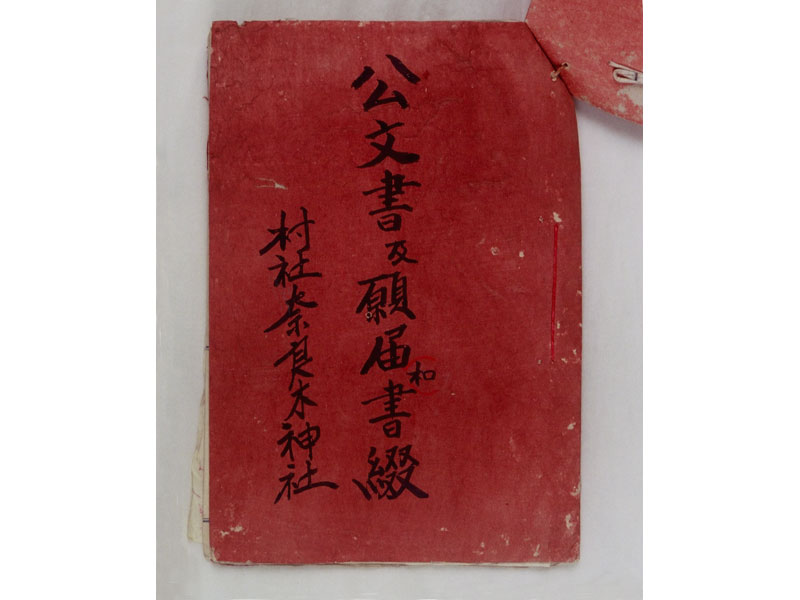 公文書及願届書綴
和
村社奈良木神社